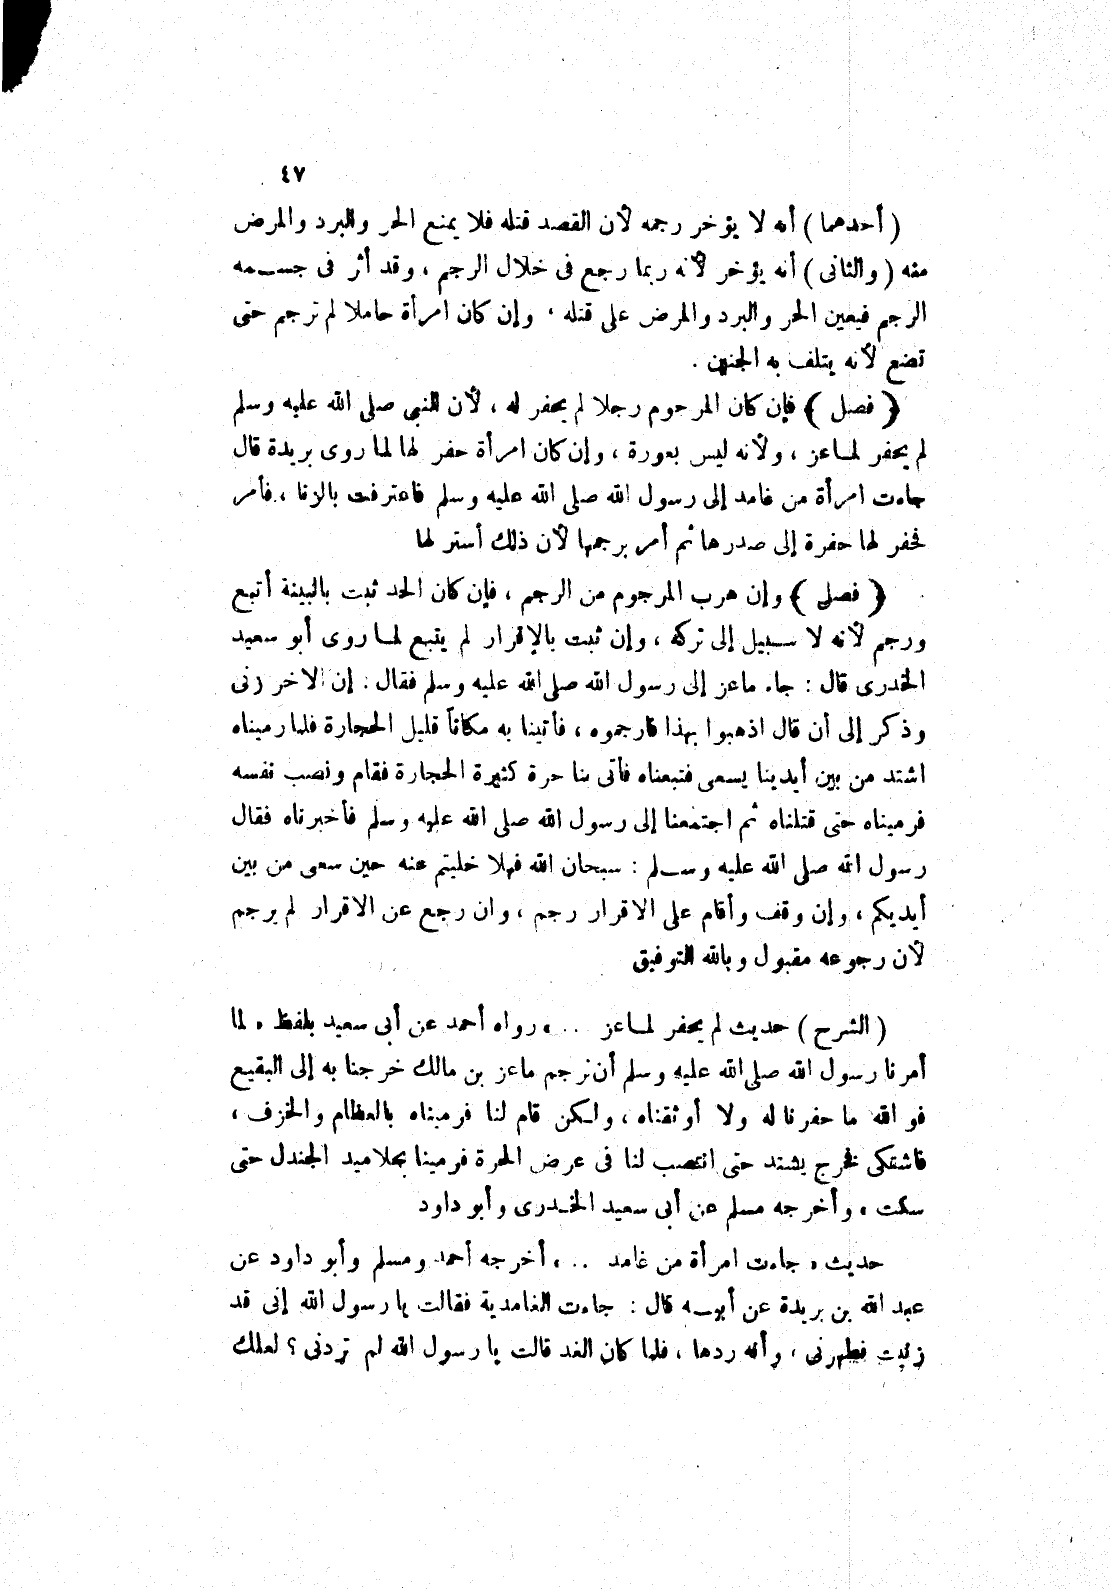 ٤٧
( أحدهما ) أنه لا يؤخر رجمه لأن القصد قتله فلا يمنع الحر والبرد والمرض
منه ( والثانى ) أنه يؤخر لأنه ربما رجع فى خلال الرجم ، وقد أثر فى جسمه
الرجم فيعين الحر والبرد والمرض على قتله ، وإن كان امرأة حاملا لم ترجم حتى
تضع لأنه يتلف به الجنين .
﴿ فصل ﴾ فإن كان المرجوم رجلا لم يحفر له ، لأن النبى صلى الله عليه وسلم
لم يحفر لماعز ، ولأنه ليس بعورة ، وإن كان امرأة حفر لها لما روى بريدة قال
جاءت امرأة من غامد إلى رسول الله صلى الله عليه وسلم فاعترفت بالزنا ، فأمر
فحفر لها حفرة إلى صدرها ثم أمر برجمها لأن ذلك أستر لها
﴿ فصل ﴾ وإن هرب المرجوم من الرجم ، فإن كان الحد ثبت بالبينة أتبع
ورجم لأنه لا سبيل إلى تركه ، وإن ثبت بالإقرار لم يتبع لما روى أبو سعيد
الخدرى قال : جاء ماعز إلى رسول الله صلى الله عليه وسلم فقال : إن الاخر زنى
وذكر إلى أن قال اذهبوا بهذا فارجموه ، فأتينا به مكاناً قليل الحجارة فلما رميناه
اشتد من بين أيدينا يسعى فتبعناه فأتى بنا حرة كثيرة الحجارة فقام ونصب نفسه
فرميناه حتى قتلناه ثم اجتمعنا إلى رسول الله صلى الله عليه وسلم فأخبرناه فقال
رسول الله صلى الله عليه وسلم : سبحان الله فهلا خليتم عنه حين سعى من بين
أيديكم ، وإن وقف وأقام على الاقرار رجم ، وان رجع عن الاقرار لم يرجم
لأن رجوعه مقبول وبالله التوفيق
( الشرح ) حديث لم يحفر لماعز .. ، رواه أحمد عن أبى سعيد بلفظ « لما
أمرنا رسول الله صلى الله عليه وسلم أن نرجم ماعز بن مالك خرجنا به إلى البقيع
فو الله ما حفرنا له ولا أوثقناه ، ولكن قام لنا فرميناه بالعظام والخزف ،
فاشتكى فخرج يشتد حتى انتصب لنا فى عرض الحرة فرمينا بجلاميد الجندل حتى
سكت » وأخرجه مسلم عن أبى سعيد الخدرى وأبو داود
حديث « جاءت امرأة من غامد .. ، أخرجه أحمد ومسلم وأبو داود عن
عبد الله بن بريدة عن أبيه قال : جاءت الغامدية فقالت يا رسول الله إنى قد
زنيت فطهرنى ، وأنه ردها ، فلما كان الغد قالت يا رسول الله لم تردنى ؟ لعلك